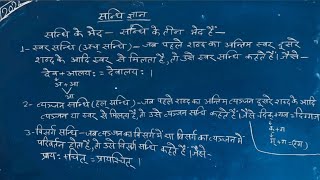 सन्धि ज्ञान
सन्धि के भेद - सन्धि के तीन भेद हैं -
1- स्वर सन्धि (अच् सन्धि) - जब पहले शब्द का अन्तिम स्वर दूसरे
शब्द के आदि स्वर से मिलता है, तो उसे स्वर सन्धि कहते हैं। जैसे -
देव + आलय: = देवालय: ।
अ + आ
आ
2- व्यञ्जन सन्धि (हल् सन्धि) - जब पहले शब्द का अन्तिम व्यञ्जन दूसरे शब्द के आदि
व्यञ्जन या स्वर से मिलता है, तो उसे व्यञ्जन सन्धि कहते हैं। जैसे दिक् + गज = दिग्गज
क् + ग
3- विसर्ग सन्धि - जब व्यञ्जन का विसर्ग में या विसर्ग का व्यञ्जन में
परिवर्तन होता है, तो उसे विसर्ग सन्धि कहते हैं। जैसे -
प्राय: + चित् = प्रायश्चित् ।